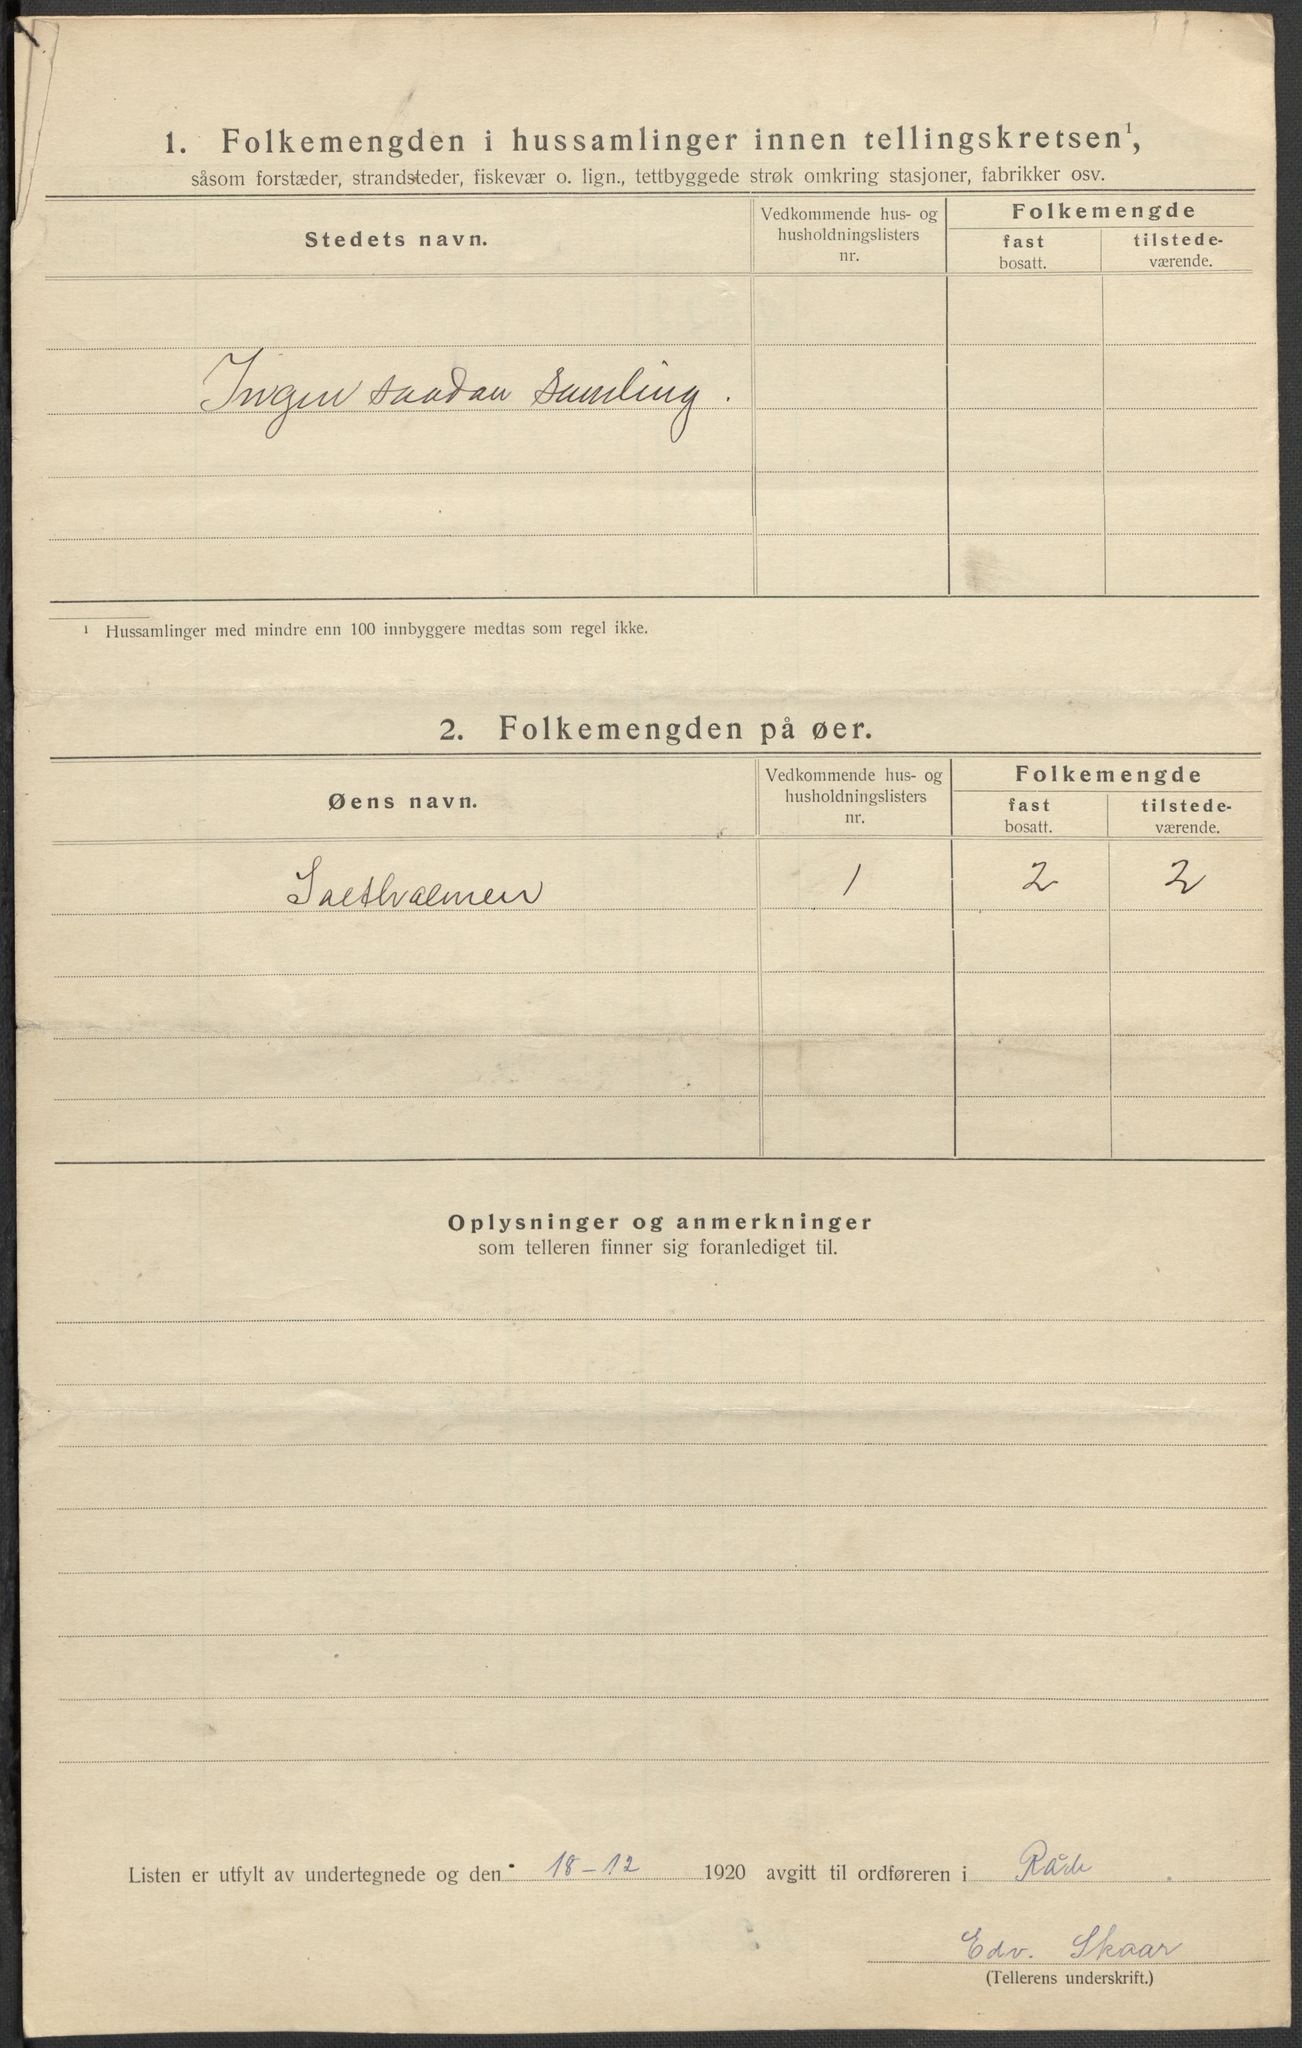 1. Folkemengden i hussamlinger innen tellingskretsen¹,
såsom forstæder, strandsteder, fiskevær o. lign., tettbyggede strøk omkring stasjoner, fabrikker osv.
Stedets navn.
Vedkommende hus- og
husholdningslisters
nr.
Folkemengde
fast
bosatt.
tilstede-
værende.
Ingen saadan samling.
¹ Hussamlinger med mindre enn 100 innbyggere medtas som regel ikke.
2. Folkemengden på øer.
Øens navn.
Vedkommende hus- og
husholdningslisters
nr.
Folkemengde
fast
bosatt.
tilstede-
værende.
Saltholmen 1 2 2
Oplysninger og anmerkninger
som telleren finner sig foranlediget til.
Listen er utfylt av undertegnede og den 18-12 1920 avgitt til ordføreren i Råde.
Edv. Skaar
(Tellerens underskrift.)